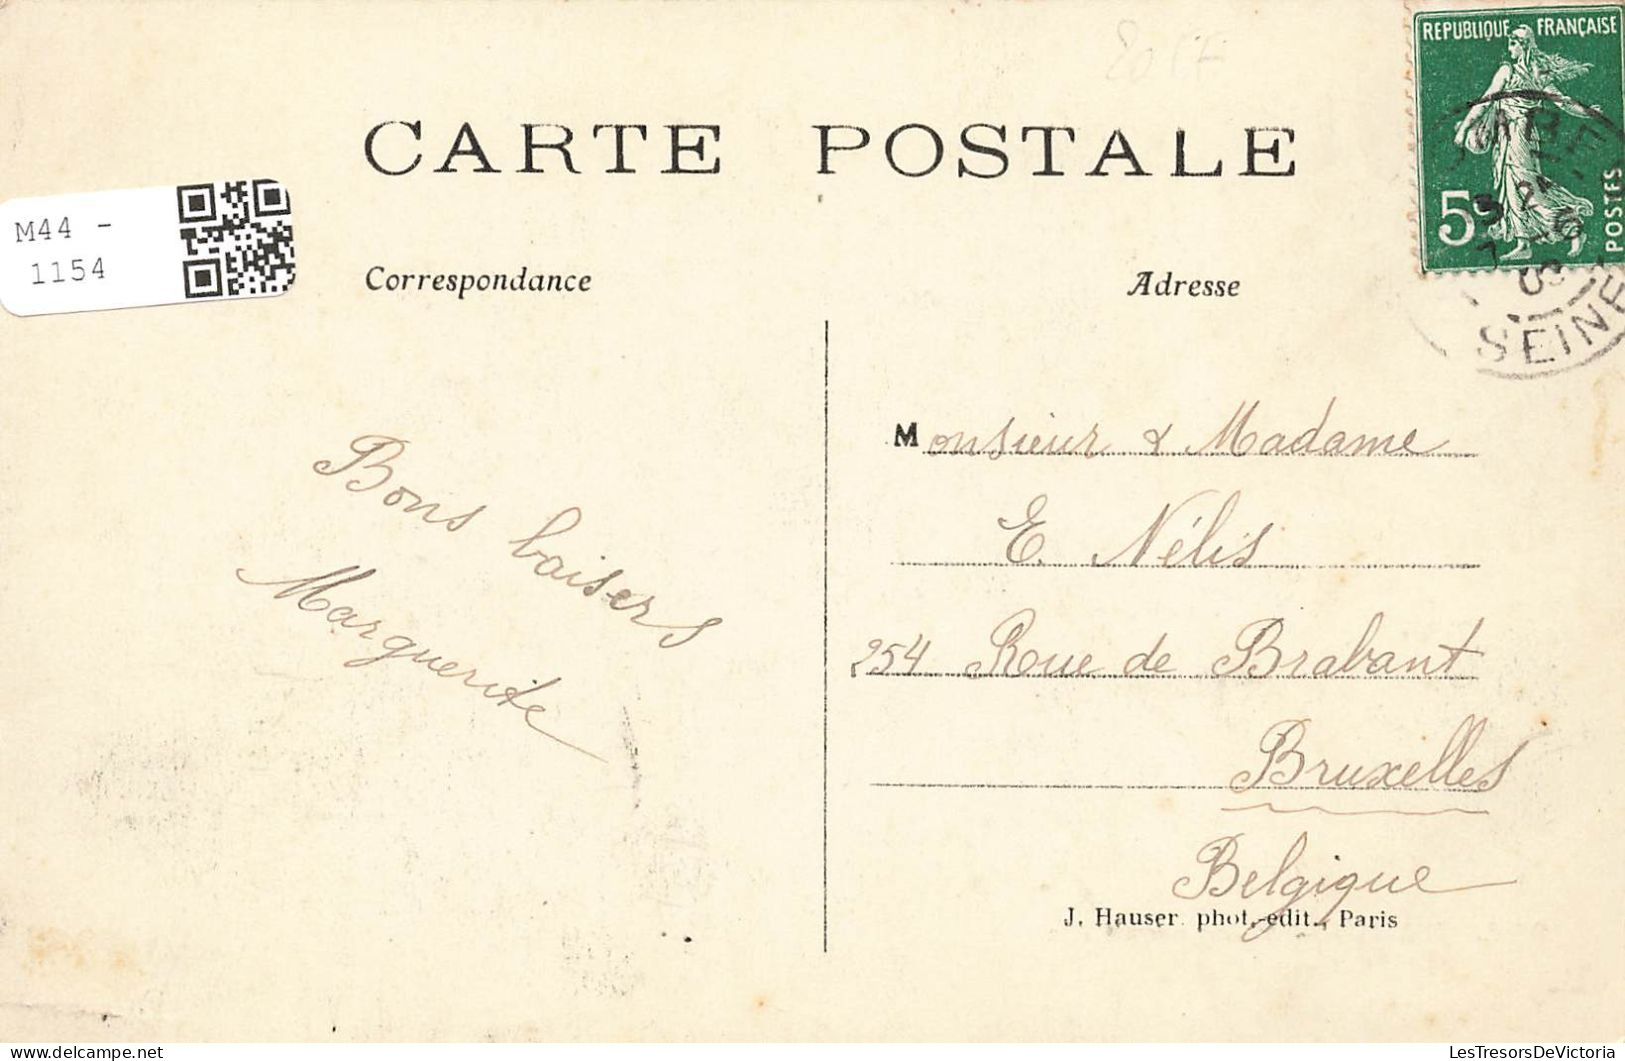 CARTE POSTALE
REPUBLIQUE FRANÇAISE
5c
POSTES
SEINE
M44 -
1154
Correspondance
Adresse
Bons baisers
Marguerite
Monsieur & Madame
E. Nélis
254 Roue de Brabant
Bruxelles
Belgique
J. Hauser phot.-edit., Paris
LesTresorsDeVictoria